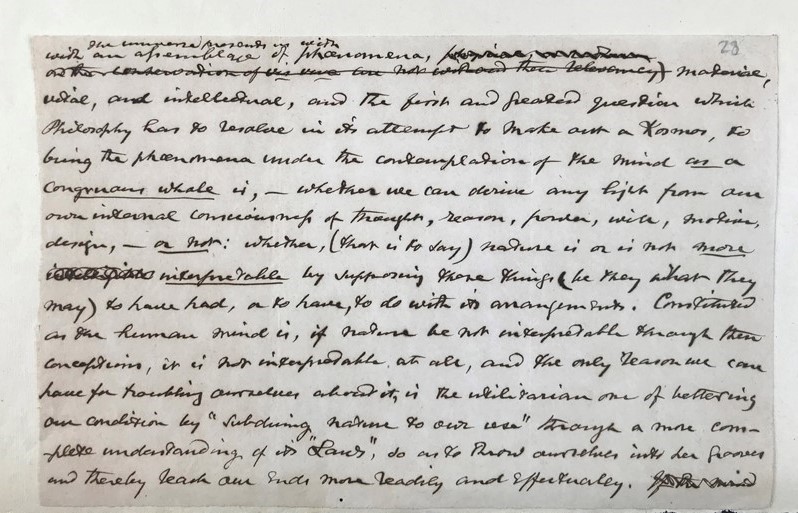 23
The universe presents us with
with an assemblage of phœnomena, physical,
or the conservation of vis viva can not withstand their relevancy) material,
vital, and intellectual, and the first and greatest question which
Philosophy has to resolve in its attempt to make out a Kosmos, to
bring the phœnomena under the contemplation of the mind as a
congruous whole is, – whether we can derive any light from our
own internal consciousness of thought, reason, power, will, motive,
design, – or not: whether, (that is to say) nature is or is not more
interpretable by supposing these things (be they what they
may) to have had, or to have, to do with its arrangements. Constituted
as the human mind is, if nature be not interpretable through these
conceptions, it is not interpretable at all, and the only reason we can
have for troubling ourselves about it, is the utilitarian one of bettering
our condition by "subduing nature to our use" through a more com-
plete understanding of its "Laws", so as to throw ourselves into her grooves
and thereby reach our ends more readily and effectually. If the mind